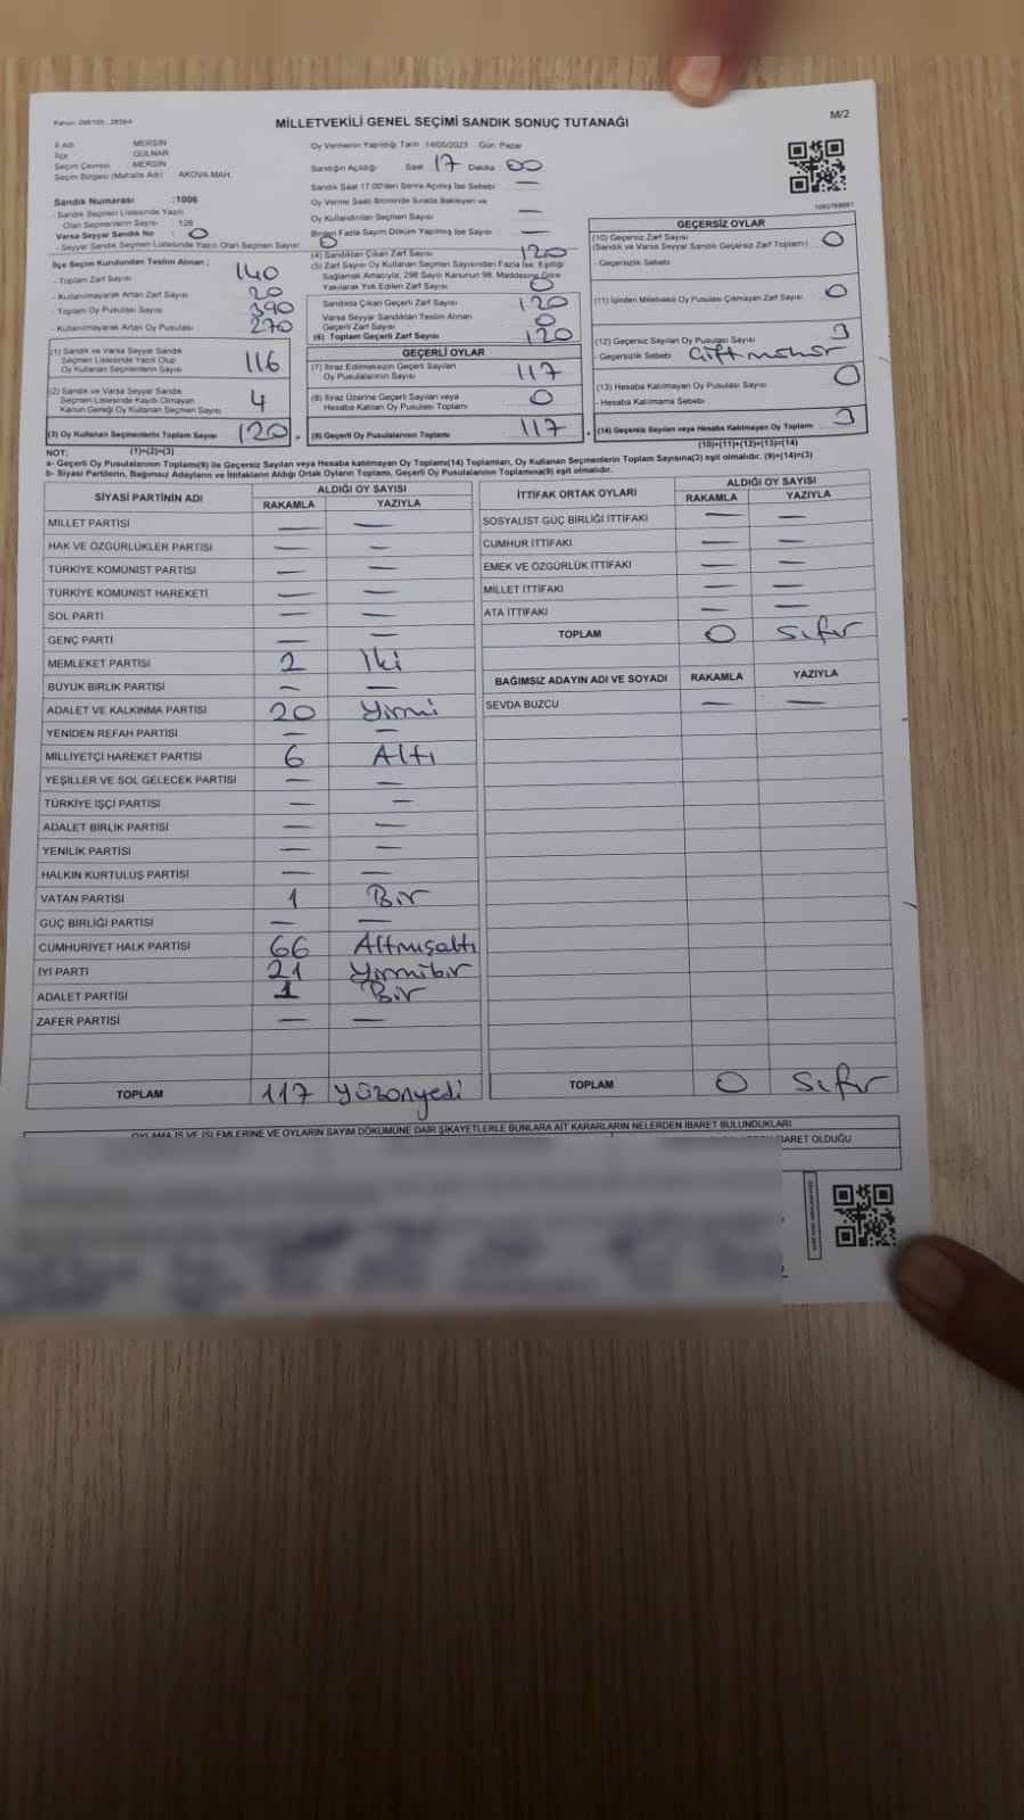 MİLLETVEKİLİ GENEL SEÇİMİ SANDIK SONUÇ TUTANAĞI
M/2
İl Adı MERSİN
İlçe GÜLNAR
Seçim Çevresi MERSİN
Seçim Bölgesi (Mahalle Adı) AKOVA MAH.
Sandık Numarası :1006
Sandık Seçmen Listesinde Yazılı
Olan Seçmenlerin Sayısı 128
Varsa Seyyar Sandık No : 0
- Seyyar Sandık Seçmen Listesinde Yazılı Olan Seçmen Sayısı 0
İlçe Seçim Kurulundan Teslim Alınan ;
- Toplam Zarf Sayısı 140
- Kullanılmayarak Artan Zarf Sayısı 20
- Toplam Oy Pusulası Sayısı 390
- Kullanılmayarak Artan Oy Pusulası 270
(1) Sandık ve Varsa Seyyar Sandık
Seçmen Listesinde Yazılı Olup
Oy Kullanan Seçmenlerin Sayısı 116
(2) Sandık ve Varsa Seyyar Sandık
Seçmen Listesinde Kayıtlı Olmayan
Kanun Gereği Oy Kullanan Seçmen Sayısı 4
(3) Oy Kullanan Seçmenlerin Toplam Sayısı 120
(1)+(2)=(3)
Oy Vermenin Yapıldığı Tarih 14/05/2023 Gün Pazar
Sandığın Açıldığı Saat 17 Dakika 00
Sandık Saat 17.00'den Sonra Açılmış İse Sebebi —
Oy Verme Saati Bitiminde Sırada Bekleyen ve
Oy Kullandırılan Seçmen Sayısı —
Birden Fazla Sayım Döküm Yapılmış İse Sayısı —
(4) Sandıktan Çıkan Zarf Sayısı 120
(5) Zarf Sayısı Oy Kullanan Seçmen Sayısından Fazla İse, Eşitliği
Sağlamak Amacıyla, 298 Sayılı Kanunun 98. Maddesine Göre
Yakılarak Yok Edilen Zarf Sayısı 0
Sandıkta Çıkan Geçerli Zarf Sayısı 120
Varsa Seyyar Sandıktan Teslim Alınan
Geçerli Zarf Sayısı 0
(6) Toplam Geçerli Zarf Sayısı 120
GEÇERLİ OYLAR
(7) İtiraz Edilmeksizin Geçerli Sayılan
Oy Pusulalarının Sayısı 117
(8) İtiraz Üzerine Geçerli Sayılan veya
Hesaba Katılan Oy Pusulası Toplamı 0
(9) Geçerli Oy Pusulalarının Toplamı 117
GEÇERSİZ OYLAR
(10) Geçersiz Zarf Sayısı 0
(Sandık ve Varsa Seyyar Sandık Geçersiz Zarf Toplamı)
- Geçersizlik Sebebi
(11) İçinden Milletvekili Oy Pusulası Çıkmayan Zarf Sayısı 0
(12) Geçersiz Sayılan Oy Pusulası Sayısı 3
- Geçersizlik Sebebi Çift mühür
(13) Hesaba Katılmayan Oy Pusulası Sayısı 0
- Hesaba Katılmama Sebebi
(14) Geçersiz Sayılan veya Hesaba Katılmayan Oy Toplamı 3
(10)+(11)+(12)+(13)=(14)
NOT:
a- Geçerli Oy Pusulalarının Toplamı(9) ile Geçersiz Sayılan veya Hesaba katılmayan Oy Toplamı(14) Toplamları, Oy Kullanan Seçmenlerin Toplam Sayısına(3) eşit olmalıdır. (9)+(14)=(3)
b- Siyasi Partilerin, Bağımsız Adayların ve İttifakların Aldığı Ortak Oyların Toplamı, Geçerli Oy Pusulalarının Toplamına(9) eşit olmalıdır.
SİYASİ PARTİNİN ADI ALDIĞI OY SAYISI
RAKAMLA YAZIYLA
MİLLET PARTİSİ — —
HAK VE ÖZGÜRLÜKLER PARTİSİ — —
TÜRKİYE KOMÜNİST PARTİSİ — —
TÜRKİYE KOMÜNİST HAREKETİ — —
SOL PARTİ — —
GENÇ PARTİ — —
MEMLEKET PARTİSİ 2 İki
BÜYÜK BİRLİK PARTİSİ — —
ADALET VE KALKINMA PARTİSİ 20 Yirmi
YENİDEN REFAH PARTİSİ — —
MİLLİYETÇİ HAREKET PARTİSİ 6 Altı
YEŞİLLER VE SOL GELECEK PARTİSİ — —
TÜRKİYE İŞÇİ PARTİSİ — —
ADALET BİRLİK PARTİSİ — —
YENİLİK PARTİSİ — —
HALKIN KURTULUŞ PARTİSİ — —
VATAN PARTİSİ 1 Bir
GÜÇ BİRLİĞİ PARTİSİ — —
CUMHURİYET HALK PARTİSİ 66 Altmışaltı
İYİ PARTİ 21 Yirmibir
ADALET PARTİSİ 1 Bir
ZAFER PARTİSİ — —
TOPLAM 117 yüzonyedi
İTTİFAK ORTAK OYLARI ALDIĞI OY SAYISI
RAKAMLA YAZIYLA
SOSYALİST GÜÇ BİRLİĞİ İTTİFAKI — —
CUMHUR İTTİFAKI — —
EMEK VE ÖZGÜRLÜK İTTİFAKI — —
MİLLET İTTİFAKI — —
ATA İTTİFAKI — —
TOPLAM 0 Sıfır
BAĞIMSIZ ADAYIN ADI VE SOYADI RAKAMLA YAZIYLA
SEVDA BUZCU — —
TOPLAM 0 Sıfır
OYLAMA İŞ VE İŞLEMLERİNE VE OYLARIN SAYIM DÖKÜMÜNE DAİR ŞİKAYETLERLE BUNLARA AİT KARARLARIN NELERDEN İBARET BULUNDUKLARI
BARET OLDUĞU